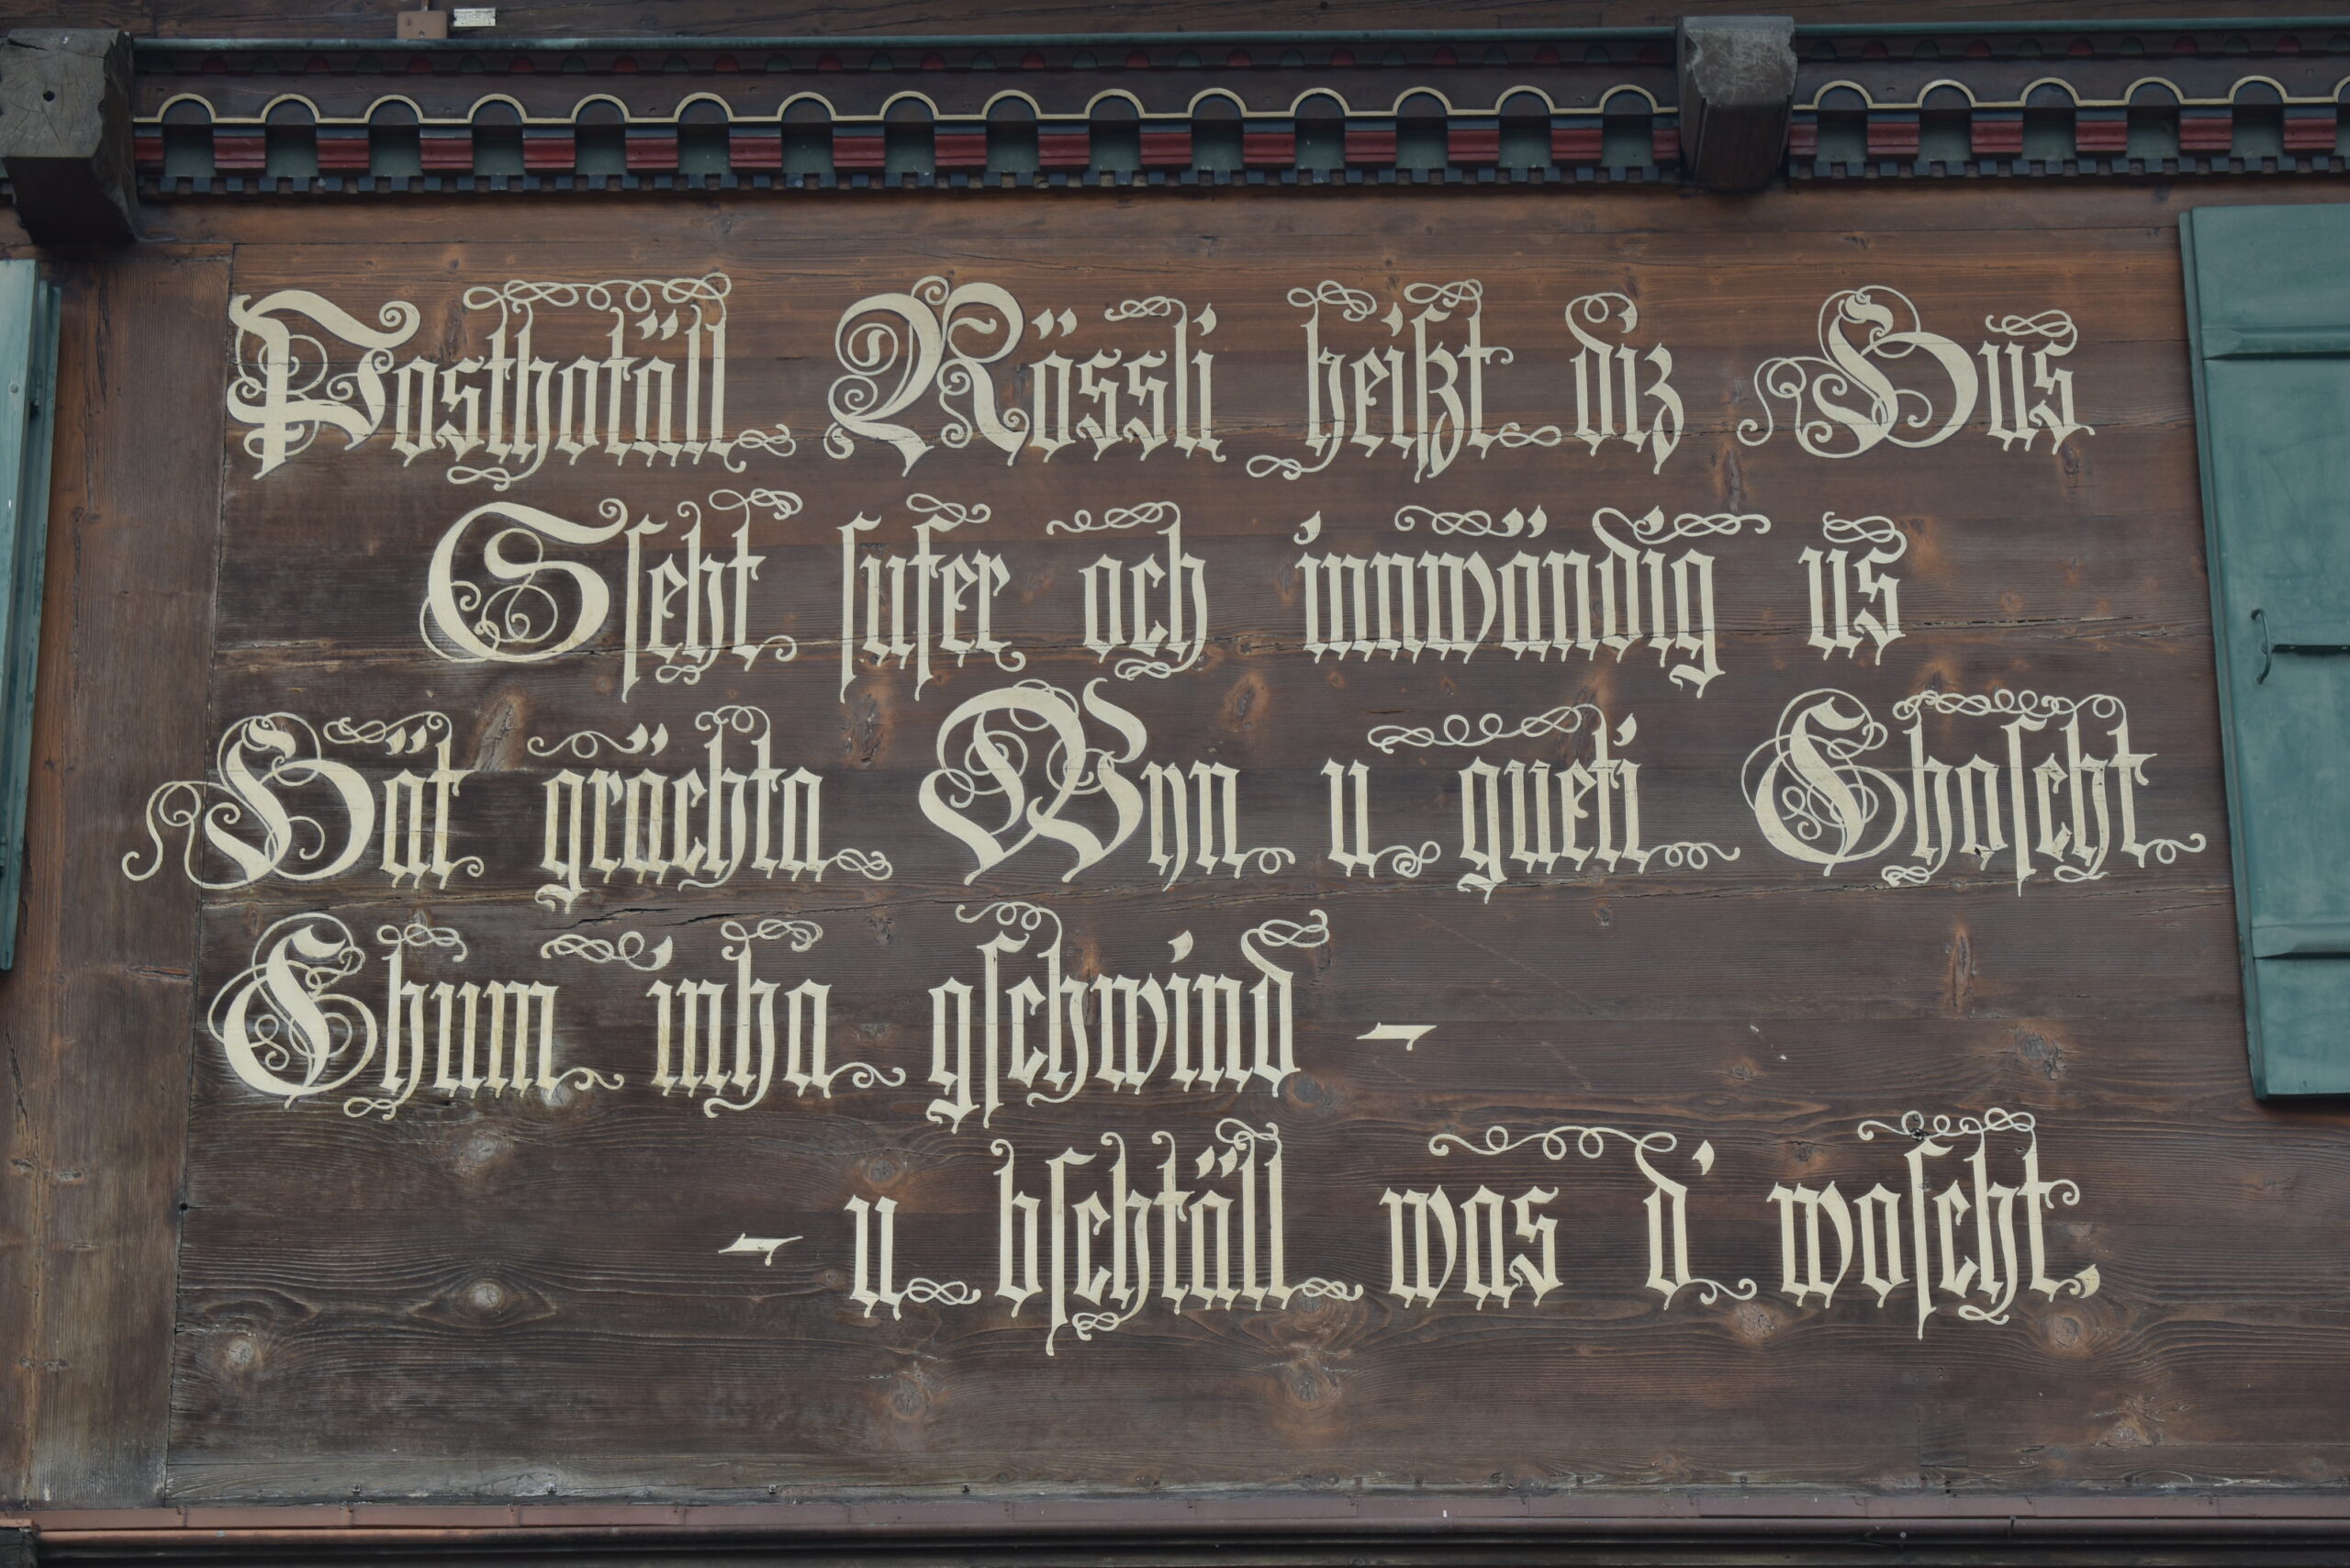 Posthotäll Rössli heißt diz Hus
Gseht sufer och innwändig us
Hät grächta Wyn u gueti Choscht
Chum inha gschwind -
- u bschtäll was d' woscht.